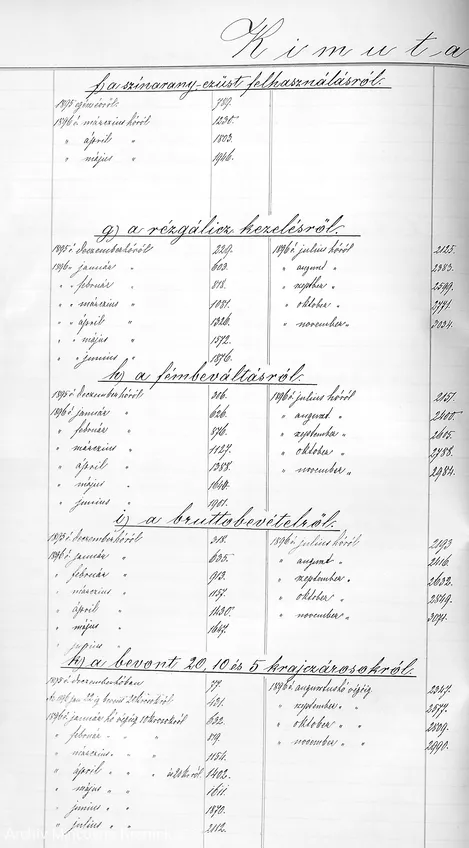 Kimuta
f) a színarany-ezüst felhasználásról.
1895 egész évről. 789.
1896 é márczius hóról 1230.
" április " 1803.
" május " 1946.
g) a rézgálicz kezelésről.
1895 é deczemberhóról 229. 1896 é julius hóról 2125.
1896 " január " 603. " auguszt " 2383.
" " február " 818. " szeptber " 2599.
" " márczius " 1081. " oktober " 2771.
" " április " 1326. " november " 3034.
" " május " 1572.
" " junius " 1876.
h) a fémbeváltásról.
1895 é deczemberhóról 1896 é julius hóról 2151.
1896 é január " 626. " auguszt " 2400.
" február " 876. " szeptember " 2605.
" márczius " 1127. " oktober " 2788.
" április " 1388. " november " 2984.
" május " 1640.
" junius " 1901.
i) a bruttobevételről.
1895 é deczemberhóról 318. 1896 é julius hóról 2193
1896 é január " 635. " auguszt " 2416.
" február " 913. " szeptember " 2632.
" márczius " 1157. " oktober " 2849.
" április " 1430. " november " 3071.
" május " 1647.
" junius "
k) a bevont 20, 10 és 5 krajczárosokról.
1895 é deczemberhóban 77. 1896 é augusztushó végéig 2347.
bevont 20 krosokról 401. " szeptember " " 2577.
1896 é január hó végéig 10 krosokról 632. " oktober " " 2809.
" február " " " 819. " november " " 2990.
" márczius " " " 1154.
" április " " " 1402.
" május " " 1611.
" junius " " 1870.
" julius " " 2112.